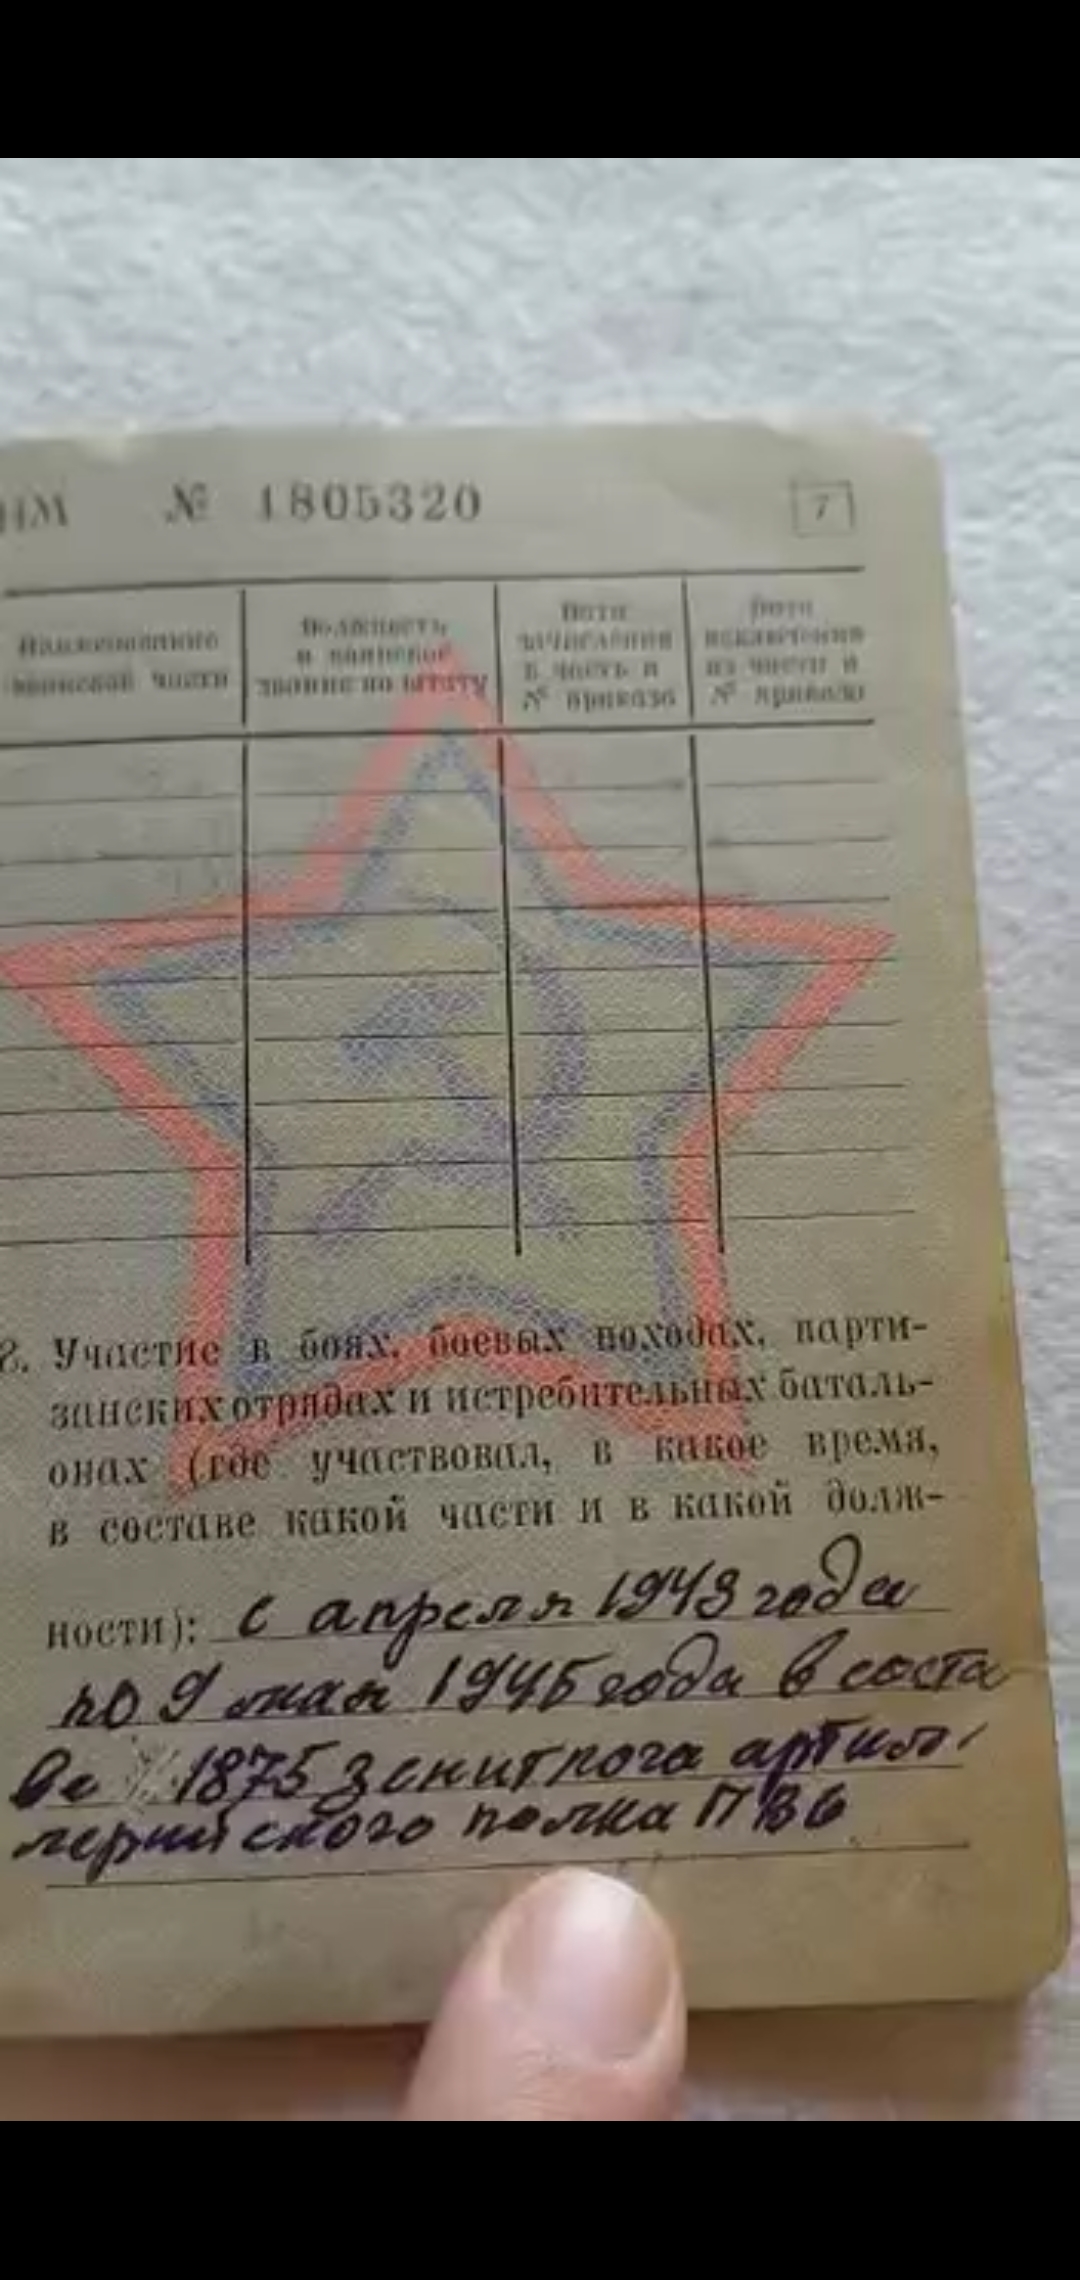 НМ № 1805320 7
Наименование воинской части
Должность и воинское звание по штату
Дата зачисления в часть и № приказа
Дата исключения из части и № приказа
8. Участие в боях, боевых походах, парти-
занских отрядах и истребительных баталь-
онах (где участвовал, в какое время,
в составе какой части и в какой долж-
ности): с апреля 1943 года
по 9 мая 1945 года в соста
ве 1875 зенитного артил-
лерийского полка ПВО